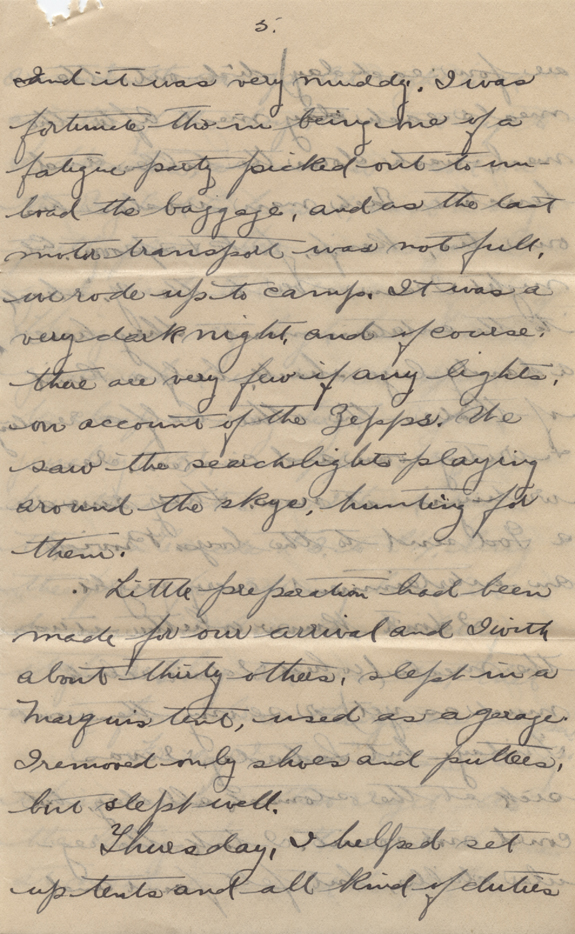 5.
and it was very muddy. I was
fortunate tho in being one of a
fatigue party picked out to un
load the baggage, and as the last
motor transport was not full,
we rode up to camp. It was a
very dark night, and of course,
there are very few if any lights,
on account of the Zepps. We
saw the searchlights playing
around the skye, hunting for
them.
Little preparation had been
made for our arrival and I with
about thirty others, slept in a
Marquis tent, used as a garage.
I removed only shoes and puttees,
but slept well.
Thursday, I helped set
up tents and all kind of duties